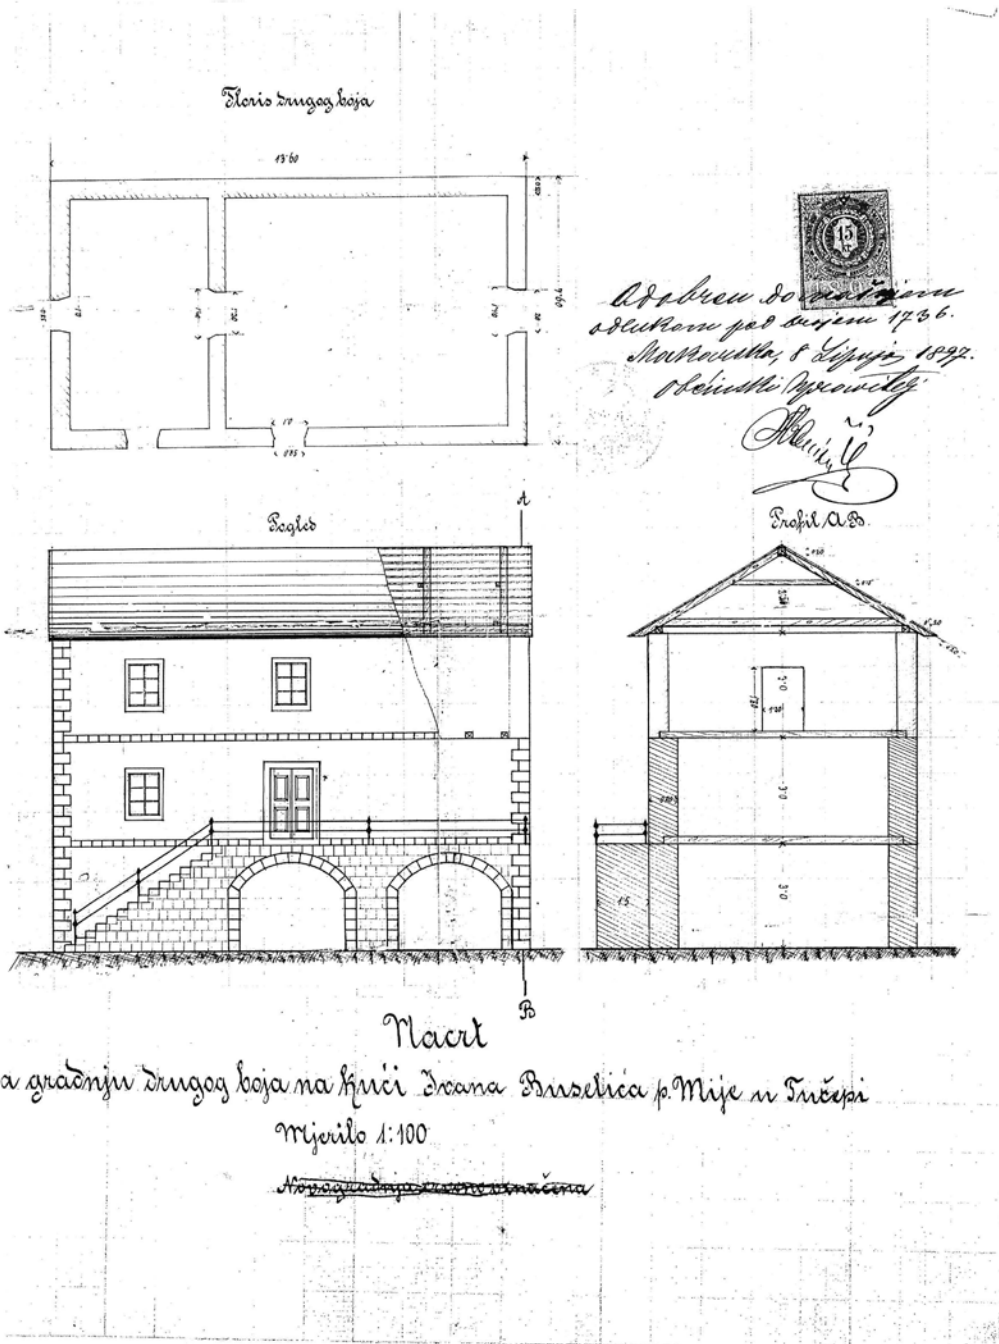 Tloris drugog boja
13·60
15
kr
Odobren domaćom
odlukom pod brojem 1736.
Makarska, 8 Lipnja 1897.
Obćinski Upravitelj
A
Pogled
Profil A.B.
2·0
1·20
3·0
3·0
1·5
B
Nacrt
a gradnju drugog boja na kući Ivana Buselića p. Mije u Tučepi
Mjerilo 1:100
Novogradnja crveno označena